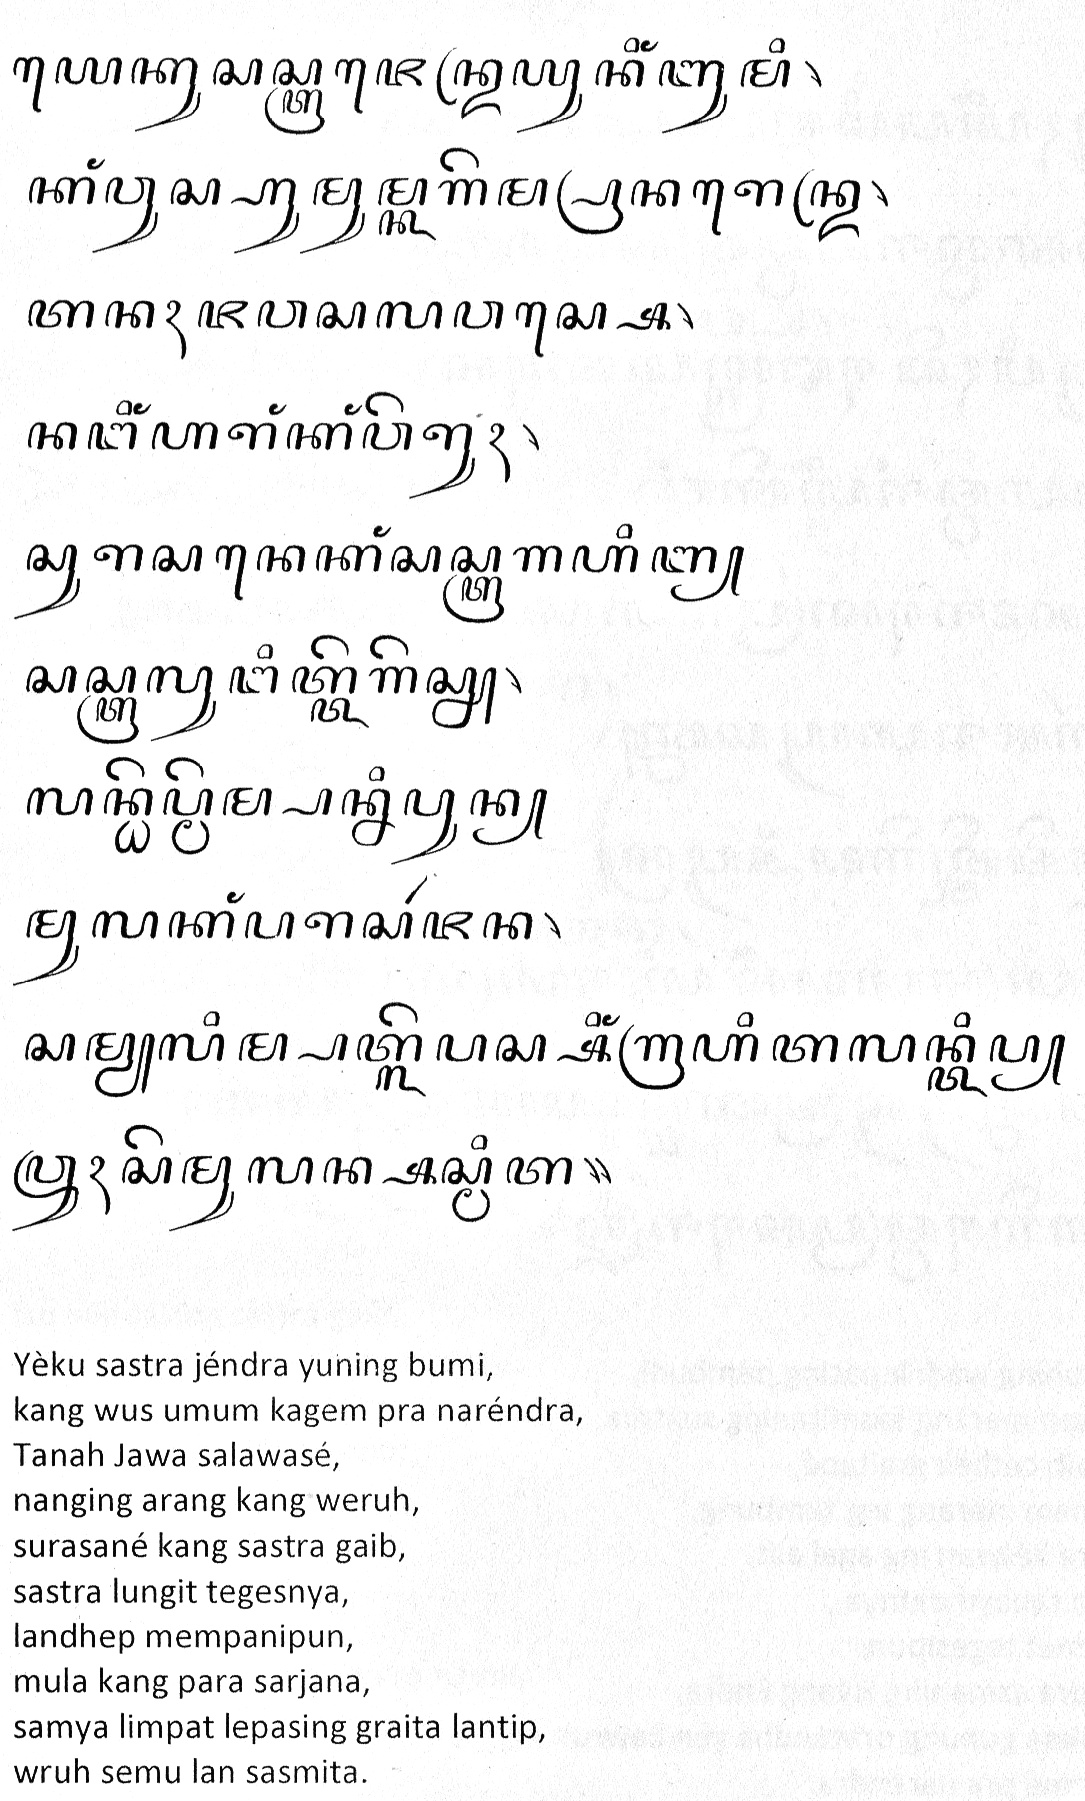 ꦪꦺꦏꦸꦱꦱ꧀ꦠꦿꦗꦺꦤ꧀ꦢꦿꦪꦸꦤꦶꦁꦧꦸꦩꦶ꧈
ꦏꦁꦮꦸꦱ꧀ꦲꦸꦩꦸꦩ꧀ꦏꦒꦼꦩ꧀ꦥꦿꦤꦫꦺꦤ꧀ꦢꦿ꧈
ꦠꦤꦃꦗꦮꦱꦭꦮꦱ꧀ꦱꦺ꧈
ꦤꦔꦶꦁꦲꦫꦁꦏꦁꦮꦼꦫꦸꦃ꧈
ꦱꦸꦫꦱꦤꦺꦏꦁꦱꦱ꧀ꦠꦿꦒꦲꦶꦧ꧀
ꦱꦱ꧀ꦠꦿꦭꦸꦔꦶꦠ꧀ꦠꦼꦒꦼꦱ꧀ꦚ꧈
ꦭꦤ꧀ꦝꦼꦥ꧀ꦩꦼꦩ꧀ꦥꦤꦶꦥꦸꦤ꧀
ꦩꦸꦭꦏꦁꦥꦫꦱꦂꦗꦤ꧈
ꦱꦩꦾꦭꦶꦩ꧀ꦥꦠ꧀ꦭꦼꦥꦱ꧀ꦱꦶꦁꦒꦿꦲꦶꦠꦭꦤ꧀ꦠꦶꦥ꧀
ꦮꦿꦸꦃꦱꦼꦩꦸꦭꦤ꧀ꦱꦱ꧀ꦩꦶꦠ꧉
Yèku sastra jéndra yuning bumi,
kang wus umum kagem pra naréndra,
Tanah Jawa salawasé,
nanging arang kang weruh,
surasané kang sastra gaib,
sastra lungit tegesnya,
landhep mempanipun,
mula kang para sarjana,
samya limpat lepasing graita lantip,
wruh semu lan sasmita.